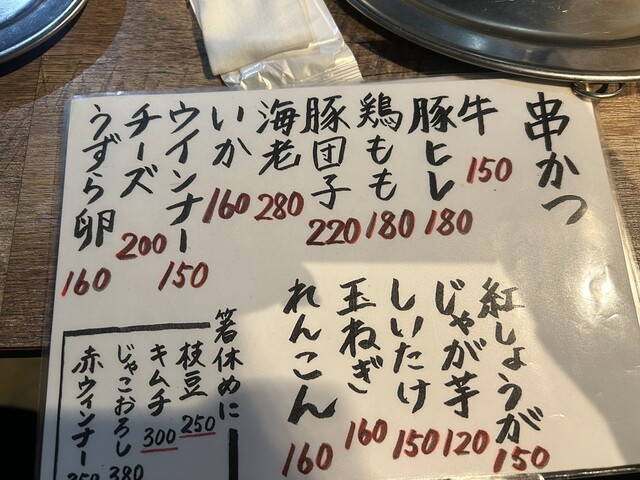 串かつ
牛 150
豚ヒレ 180
鶏もも 180
豚団子 220
海老 280
いか 160
ウインナー 150
チーズ 200
うずら卵 160
紅しょうが 150
じゃが芋 120
しいたけ 150
玉ねぎ 160
れんこん 160
箸休めに
枝豆 250
キムチ 300
じゃこおろし 380
赤ウィンナー 350